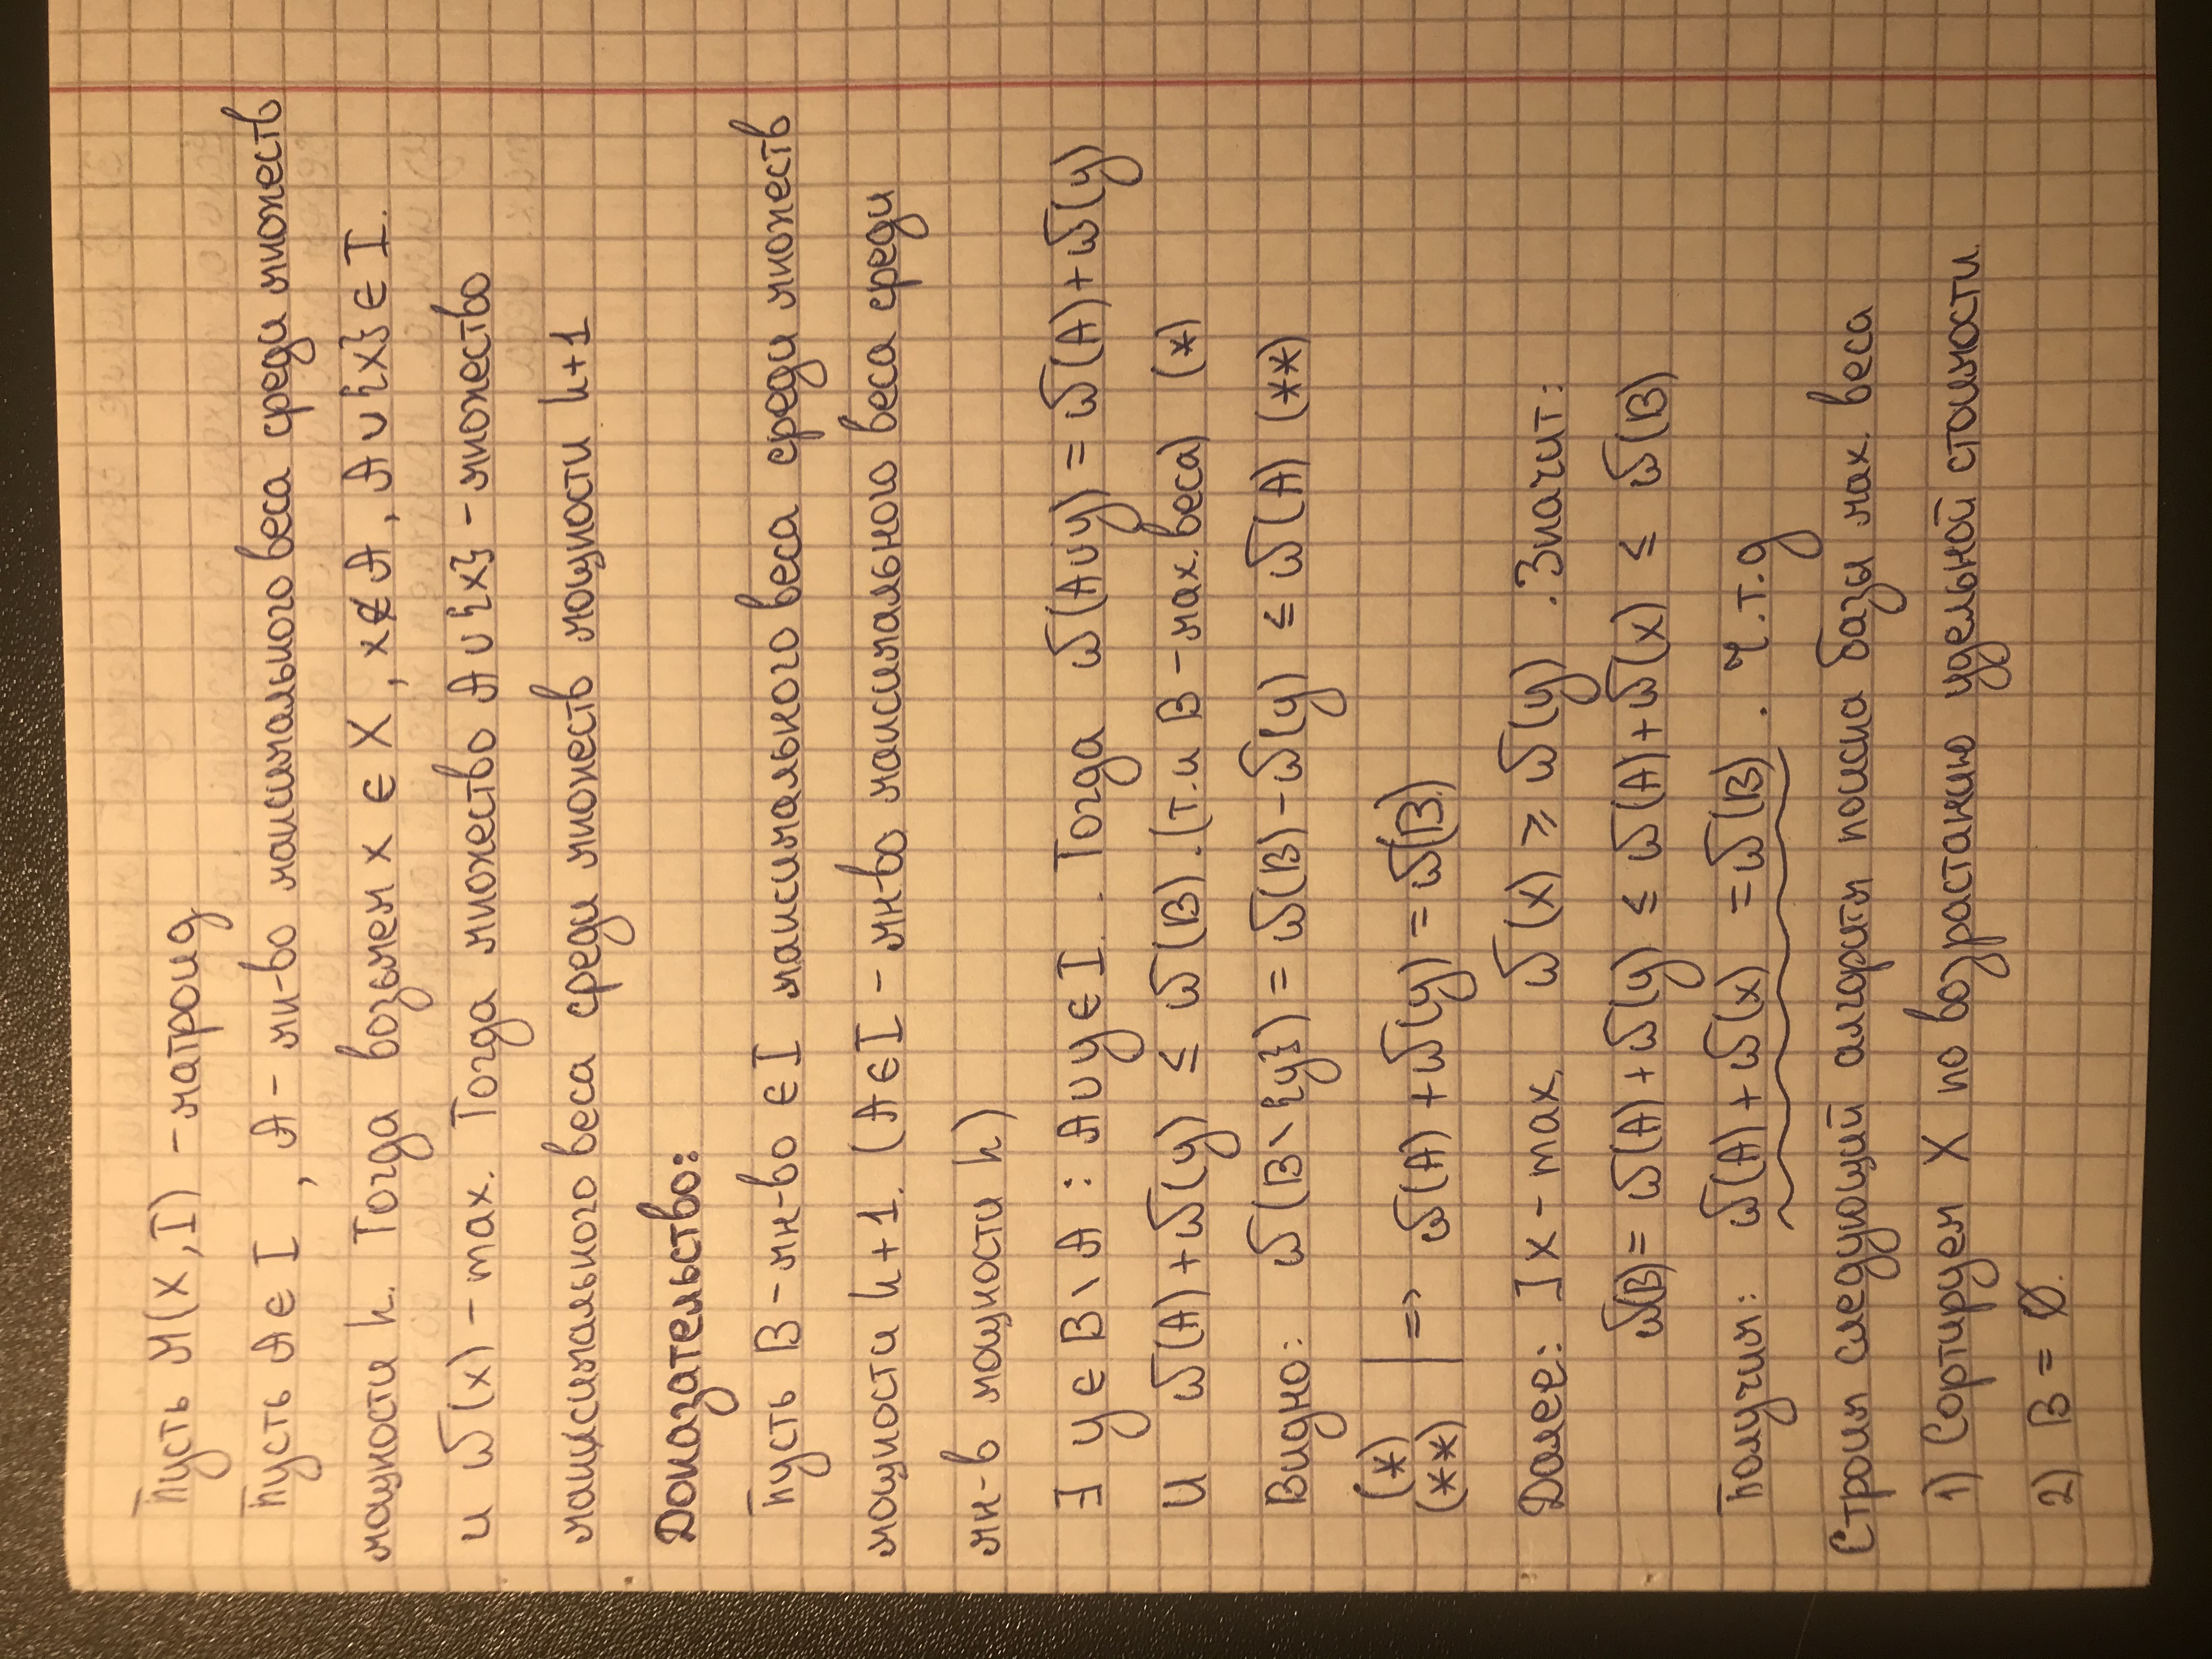 Пусть M(X, I) – матроид
Пусть A ∈ I , A – мн-во максимального веса среди множеств
мощности k. Тогда возьмем x ∈ X, x ∉ A, A ∪ {x} ∈ I.
и ω(x) – max. Тогда множество A ∪ {x} – множество
максимального веса среди множеств мощности k+1
Доказательство:
Пусть B – мн-во ∈ I максимального веса среди множеств
мощности k+1. (A ∈ I – мн-во максимального веса среди
мн-в мощности k)
∃ y ∈ B \ A : A ∪ y ∈ I. . Тогда ω(A ∪ y) = ω(A) + ω(y)
и ω(A) + ω(y) ≤ ω(B). (т.к B – мах. веса) (*)
Видно: ω(B \ {y}) = ω(B) – ω(y) ≤ ω(A) (**)
(*)
(**) | => ω(A) + ω(y) = ω(B)
Далее: ∃ x – max, ω(x) ≥ ω(y) . Значит:
ω(B) = ω(A) + ω(y) ≤ ω(A) + ω(x) ≤ ω(B)
Получим: ω(A) + ω(x) = ω(B) . Ч.т.д
Строим следующий алгоритм поиска базы мах. веса
1) Сортируем X по возрастанию удельной стоимости.
2) B = ∅.